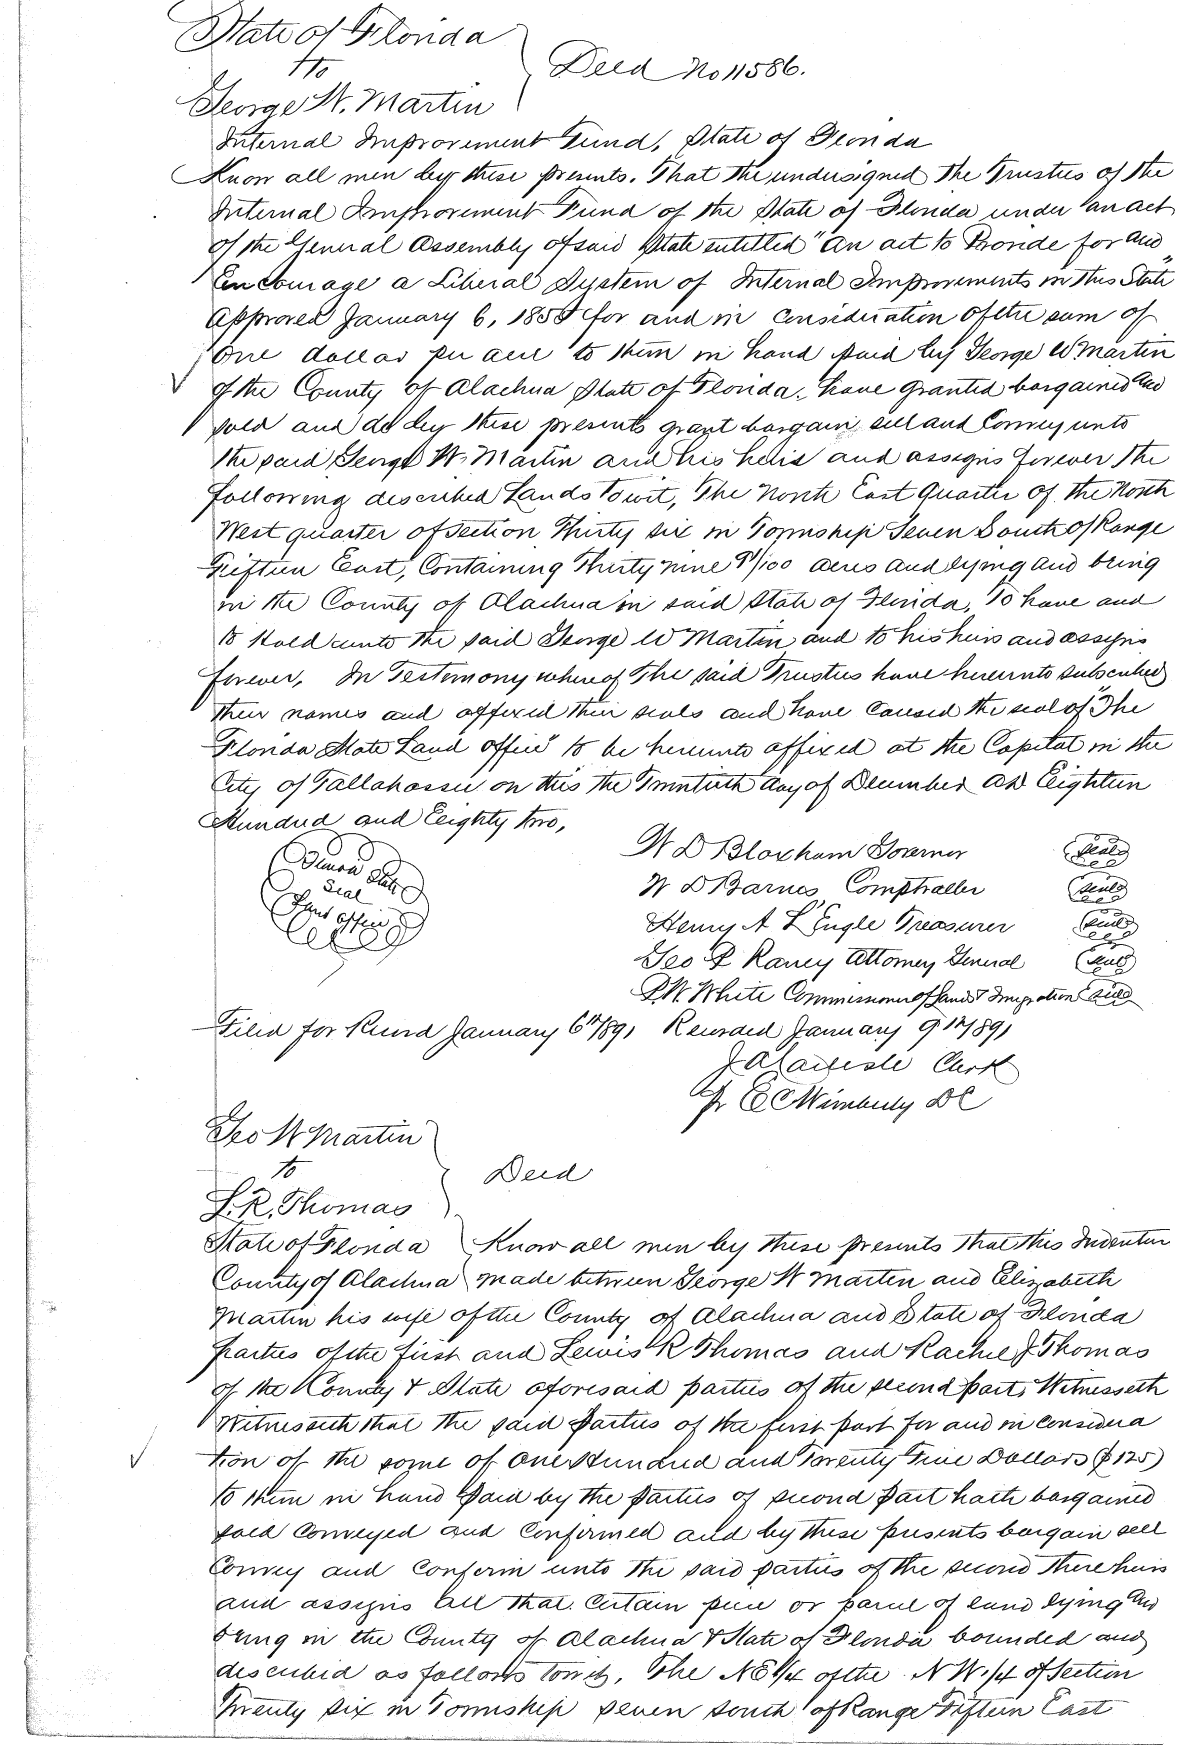 State of Florida
to
Deed No 11586.
George W. Martin
Internal Improvement Fund, State of Florida
Know all men by these presents. That the undersigned the Trustees of the
Internal Improvement Fund of the State of Florida under an act
of the General Assembly of said State entitled "An act to Provide for and
Encourage a Liberal System of Internal Improvements in this State"
Approved January 6, 1855 for and in consideration of the sum of
One dollar per acre to them in hand paid by George W Martin
of the County of Alachua State of Florida. have granted bargained and
sold and do by these presents grant bargain sell and Convey unto
the said George W. Martin and his heirs and assigns forever the
following described Lands Towit, The North East Quarter of the North
West quarter of section Thirty six in Township Seven South of Range
Fifteen East, Containing Thirty nine 91/100 acres and lying and being
in the County of Alachua in said State of Florida, To have and
to Hold unto the said George W Martin and to his heirs and assigns
forever. In Testimony whereof The said Trustees have hereunto subscribed
their names and affixed their seals and have caused the seal of "The
Florida State Land office" to be hereunto affixed at the Capital in the
City of Tallahassee on this the Twentieth day of December AD Eighteen
Hundred and Eighty two,
W D Bloxham Governor Seal
W D Barnes Comptroller Seal
Henry A L'Engle Treasurer Seal
Geo P Raney Attorney General Seal
P.W. White Commissioner of Lands & Imigration Seal
Florida State
Seal
Land office
Filed for Record January 6th 1891 Recorded January 9th 1891
J A Carlisle Clerk
Pr E C Wimberly DC
Geo W Martin
to
Deed
L.R. Thomas
State of Florida Know all men by these presents that this Indentur
County of Alachua made between George W Martin and Elizabeth
Martin his wife of the County of Alachua and State of Florida
parties of the first and Lewis R Thomas and Rachel J Thomas
of the County & State aforesaid parties of the second part, Witnesseth
Witnesseth that the said parties of the first part for and in considera
tion of the some of One Hundred and Twenty Five Dollars ($125)
to them in hand paid by the parties of second part hath bargained
sold conveyed and confirmed and by these presents bargain sell
Convey and Confirm unto the said parties of the second there heirs
and assigns all that certain piece or parcel of land lying and
being in the County of Alachua & State of Florida bounded and
described as follows towit, The NE 1/4 of the N W. 1/4 of Section
Twenty six in Township seven south of Range Fifteen East